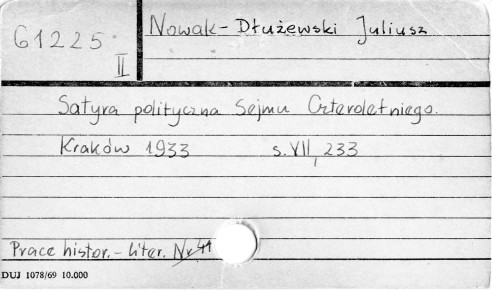 61225 Nowak-Dłużewski Juliusz
II
Satyra polityczna Sejmu Czteroletniego.
Kraków 1933 s. VII, 233
Prace histor.-liter. Nr 41
DUJ 1078/69 10.000